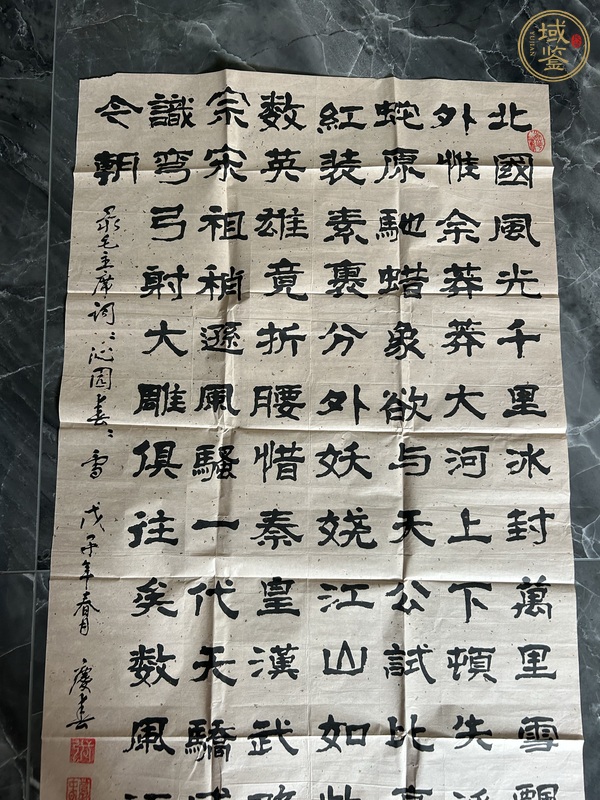 北國風光千里冰封萬里雪飄
外惟余莽莽大河上下頓失
蛇原馳蜡象欲与天公試比高
紅装素裹分外妖娆江山如此
数英雄竟折腰惜秦皇漢武略
宗宋祖稍遜風騷一代天驕成
識弯弓射大雕俱往矣数風流
今朝
录毛主席词：沁园春：雪 戊子年春月 慶春
域鉴